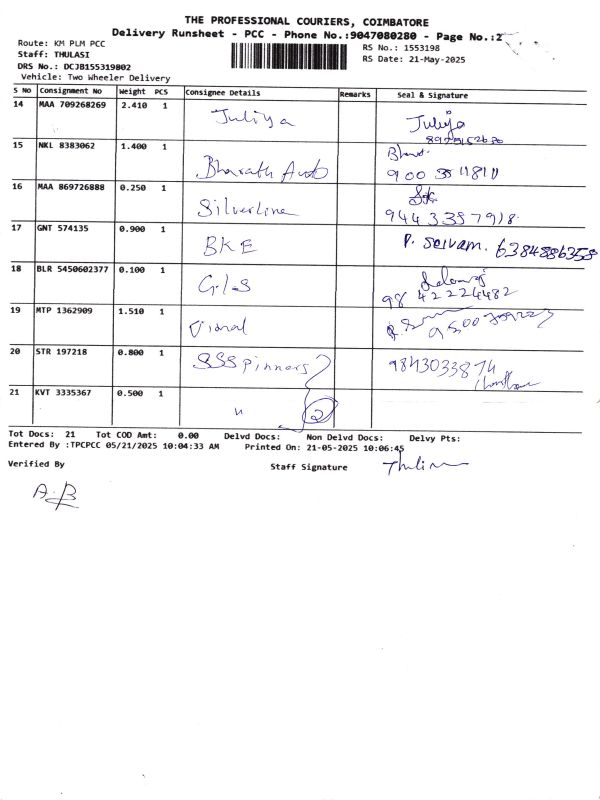 THE PROFESSIONAL COURIERS, COIMBATORE
Delivery Runsheet - PCC - Phone No.:9047080280 - Page No.:2
Route: KM PLM PCC
RS No.: 1553198
Staff: THULASI
RS Date: 21-May-2025
DRS No.: DCJB155319802
Vehicle: Two Wheeler Delivery
S No Consignment No Weight PCS Consignee Details Remarks Seal & Signature
14 MAA 709268269 2.410 1 Juliya Juliya
15 NKL 8383062 1.400 1 Bharath Auto Bharat
16 MAA 869726888 0.250 1 Silverline
9443357918
17 GNT 574135 0.900 1 BKE P. Selvam. 6384886358
18 BLR 5450602377 0.100 1 GLS
98 42224482
19 MTP 1362909 1.510 1
20 STR 197218 0.800 1 SSSpinners 9843033874
21 KVT 3335367 0.500 1 " 2
Tot Docs: 21 Tot COD Amt: 0.00 Delvd Docs: Non Delvd Docs: Delvy Pts:
Entered By :TPCPCC 05/21/2025 10:04:33 AM Printed On: 21-05-2025 10:06:45
Verified By Staff Signature
A.B